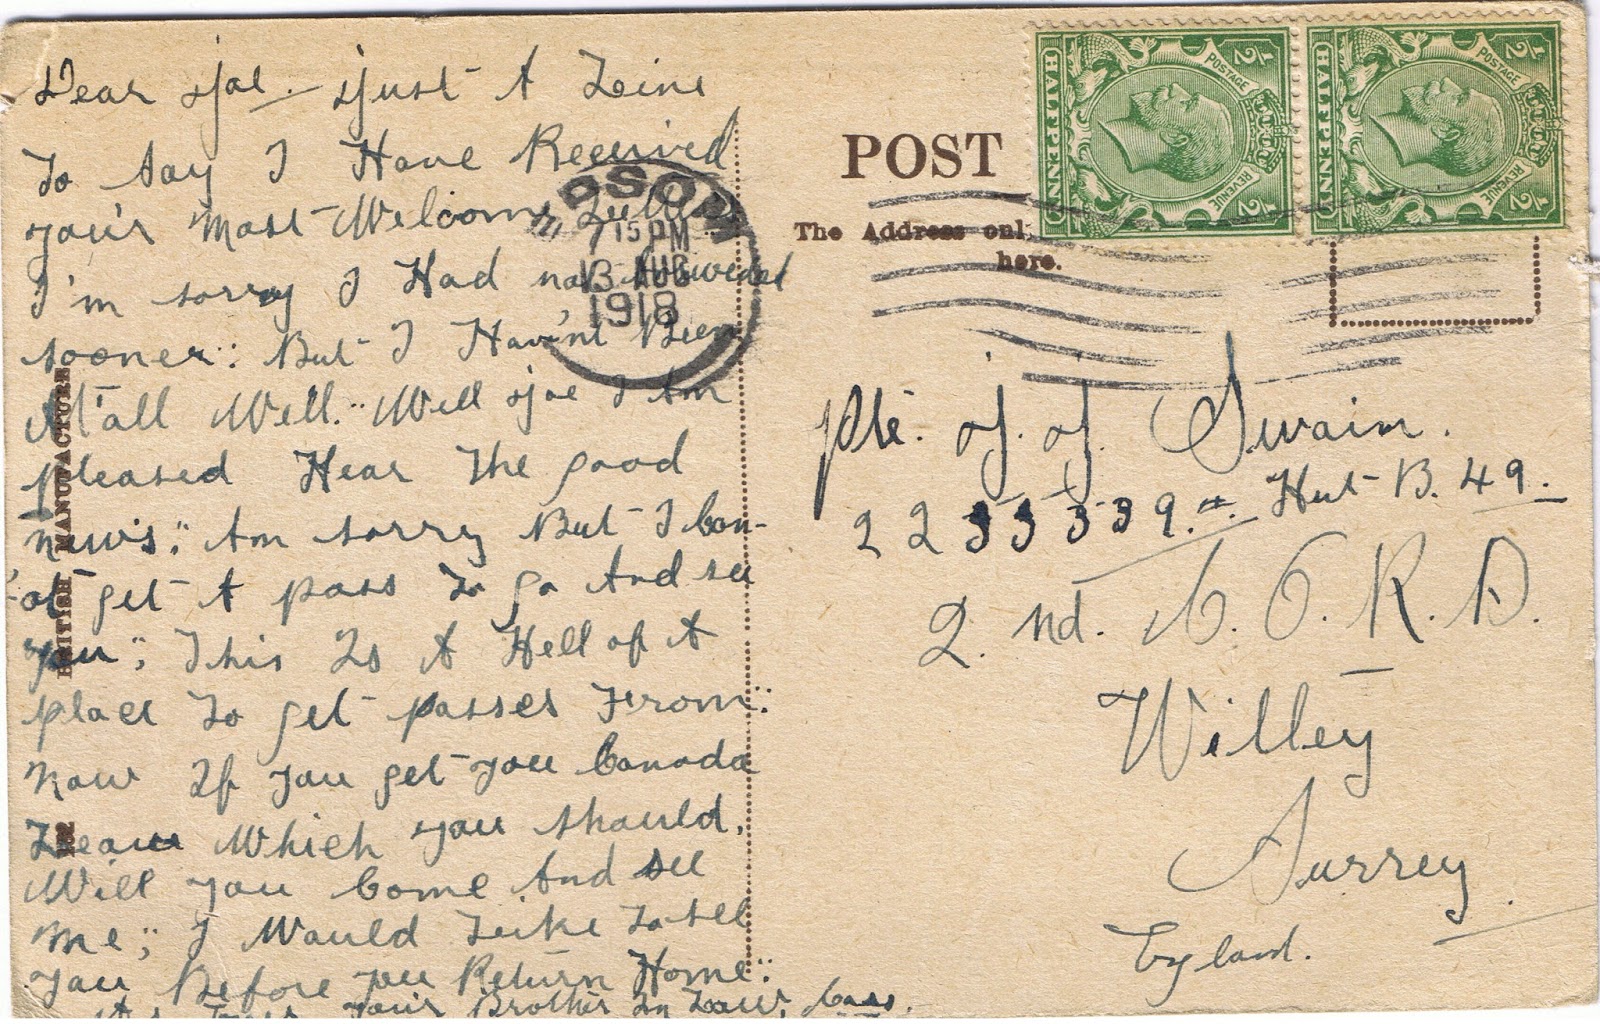 Dear Joe. Just A Line
To Say I Have Received
your's Most Welcome Letter
I'm sorry I Had not Answered
sooner: But I Hav'nt Been
At all Well. Well Joe I Am
pleased Hear The good
news: Am sorry But I Can-
-ot get A pass To go And see
you; This Is A Hell of A
place To get passes From:
Now If you get you Canada
Leave Which you should,
Will you Come And see
Me; I Would Leike To see
you Before you Return Home:
As Ever your's Brother In Law,
BRITISH MANUFACTURE
EPSOM
7 15 PM
13 AUG
1918
POST
The Address onl
here.
POSTAGE
REVENUE
HALFPENNY
1/2
1/2
POSTAGE
REVENUE
HALFPENNY
1/2
1/2
Pte. J. J. Swain.
2233339. Hut B. 49.
2.nd. C. O. R. D.
Willey
Surrey.
England.